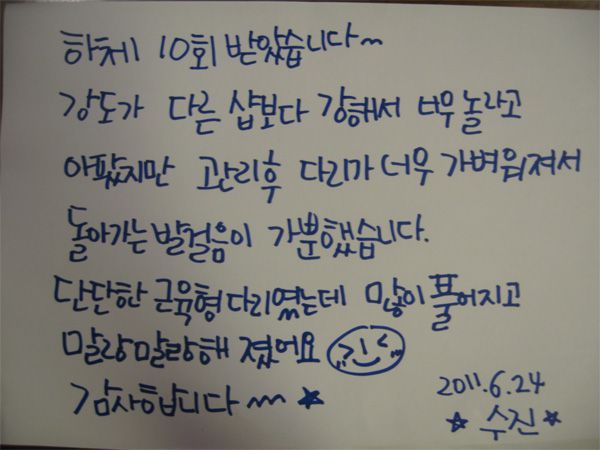 하체 10회 받았습니다~
강도가 다른 샵보다 강해서 너무 놀라고
아팠지만 관리후 다리가 너무 가벼워져서
돌아가는 발걸음이 가뿐했습니다.
단단한 근육형다리였는데 많이 풀어지고
말랑말랑해 졌어요
감사합니다~ ★
2011.6.24
★ 수진 ★